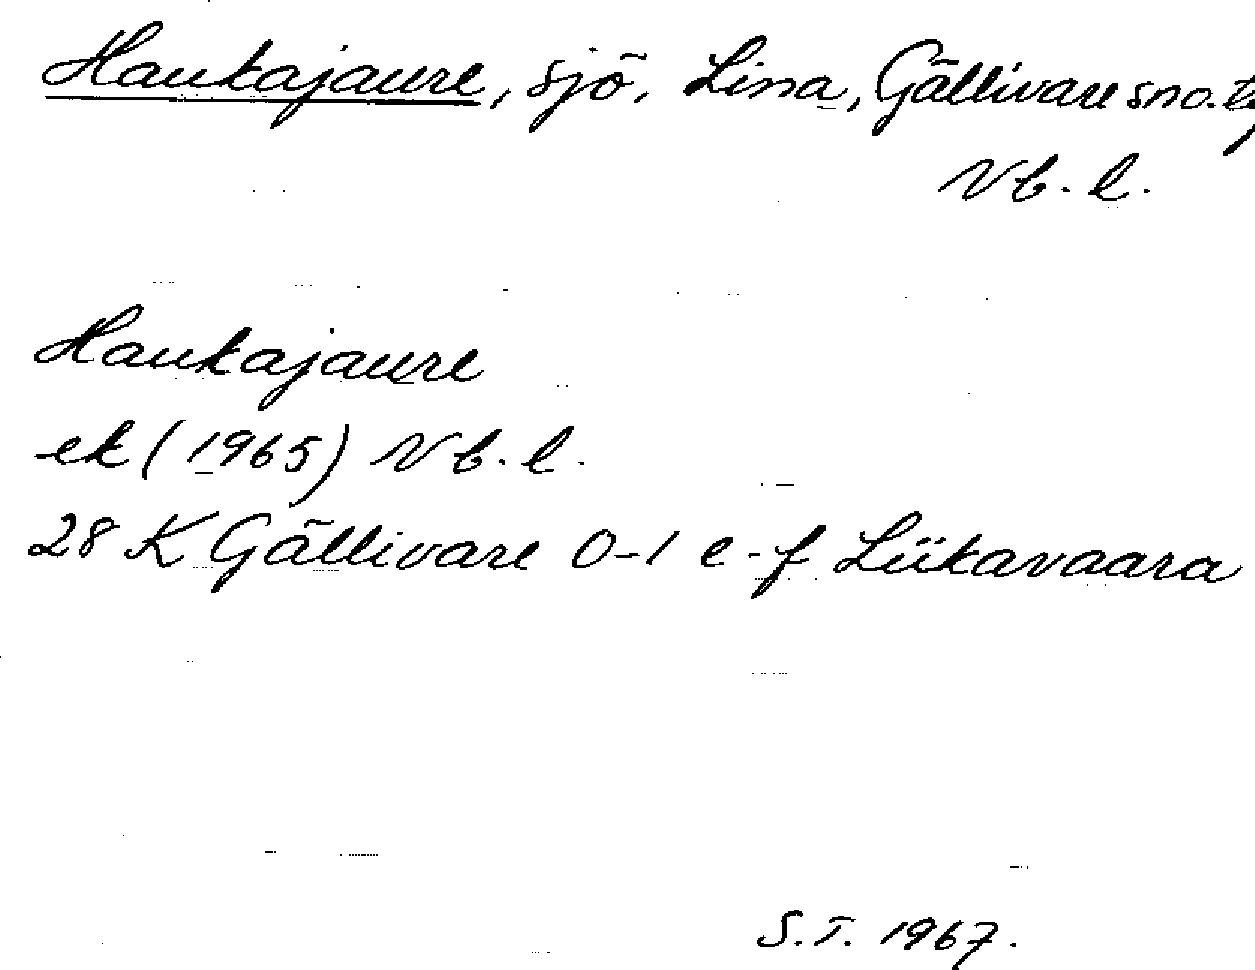 Haukajaure, sjö, Lina, Gällivare sno.
Nb. l.
Haukajaure
ek (1965) Nb. l.
28 K Gällivare 0-1 e-f Liikavaara
S.T. 1967.